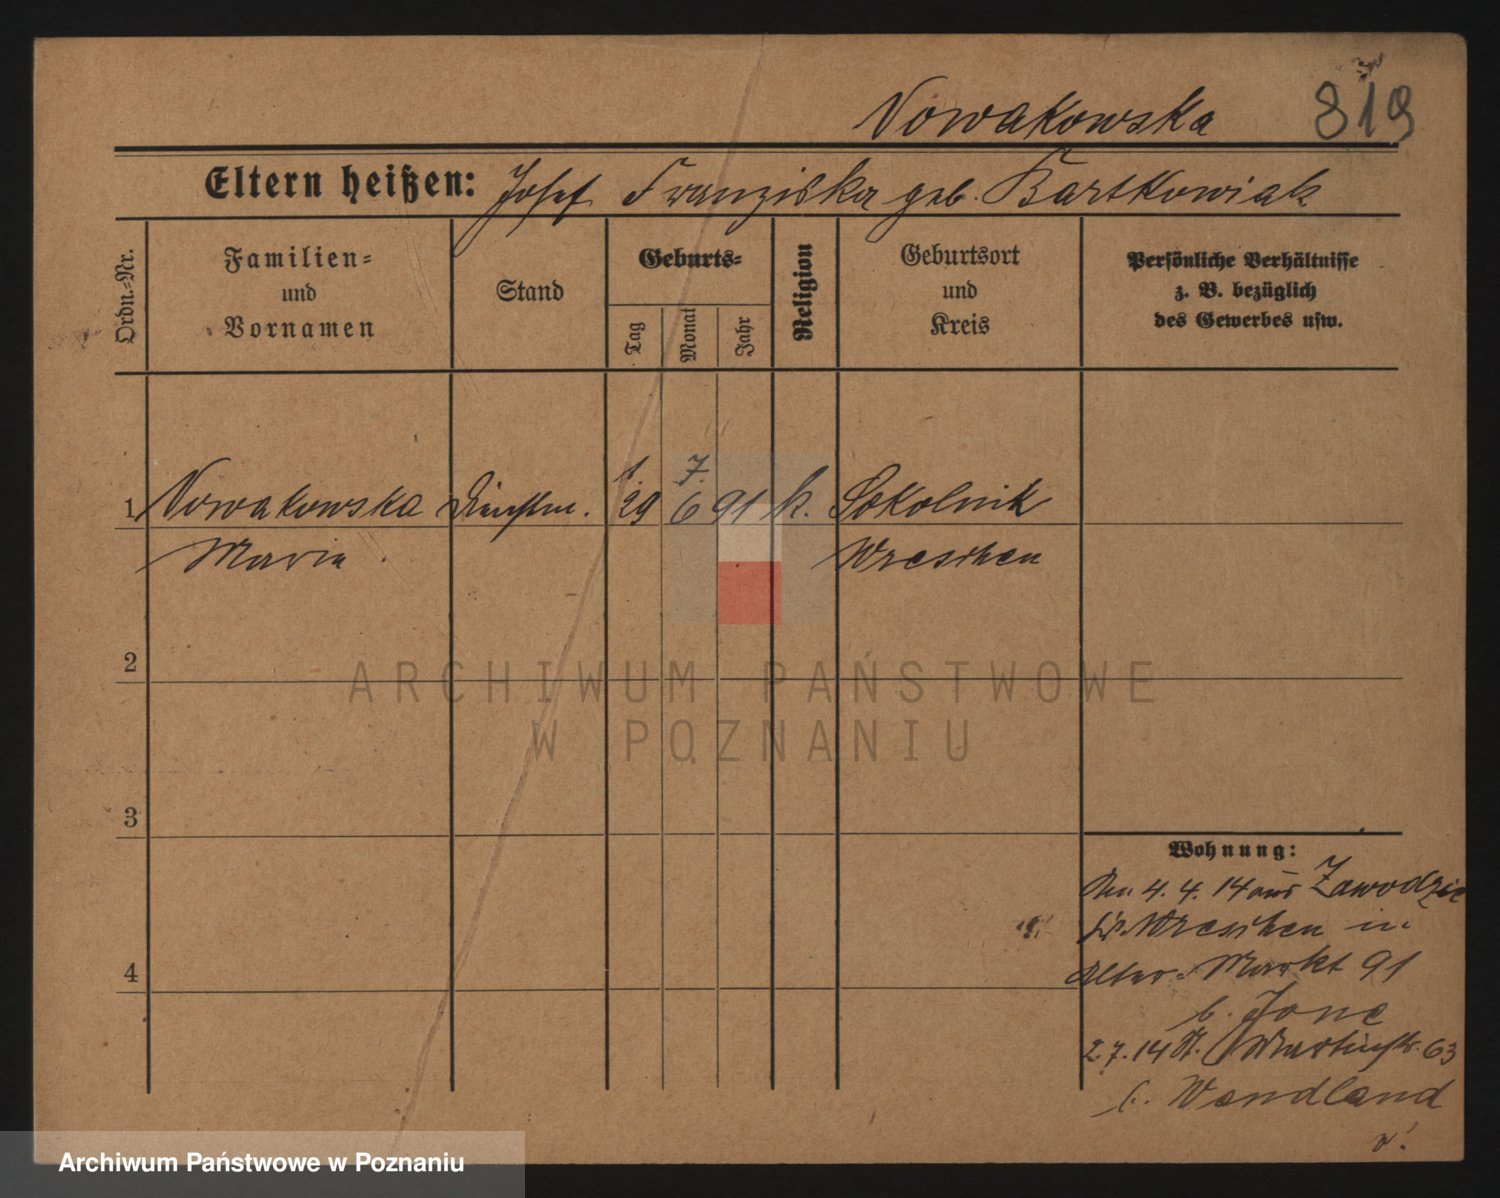 Nowakowska 819
Eltern heißen: Josef Franziska geb. Bartkowiak
Ordn.-Nr.
Familien-
und
Vornamen
Stand
Geburts-
Tag
Monat
Jahr
Religion
Geburtsort
und
Kreis
Persönliche Verhältnisse
z. B. bezüglich
des Gewerbes usw.
1. 7.
1 Nowakowska Dienstm. 29 6 91 k. Sokolnik
Maria Wreschen
2
3
4
Wohnung:
Den 4. 4. 14 aus Zawodzie
Kr. Wreschen in
Alter-Markt 91
b. Jone
2 7. 14 St. Martinstr. 63
b. Wendland
ARCHIWUM PAŃSTWOWE
W POZNANIU
Archiwum Państwowe w Poznaniu